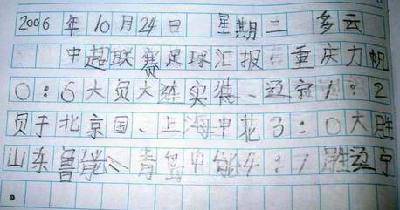 2006年10月24日 星期二 多云
中超联赛足球汇报:重庆力帆
0:6大负大连实德、辽宁1:2
负于北京国、上海申花3:0大胜
山东鲁能、青岛中能4:1胜辽宁